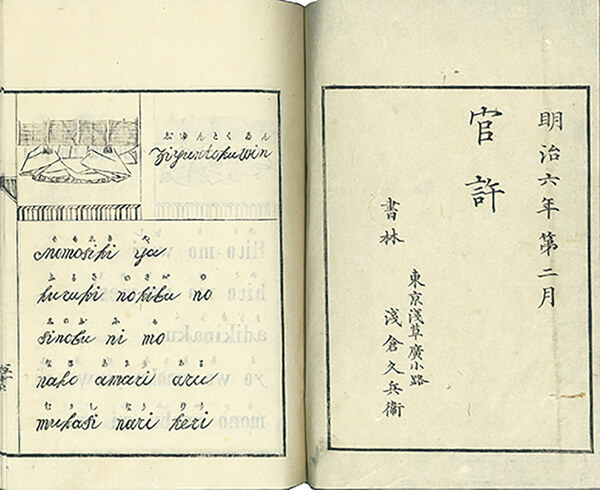 じゆんとくゐん
Ziyuntoku win
Momosiki ya
ふるき のきば の
huruki nokiba no
しのぶ に も
sinobu ni mo
なほ あまり ある
naho amari aru
むかし なり けり
mukasi nari keri
明治六年第二月
官許
書林
東京淺草廣小路
淺倉久兵衞